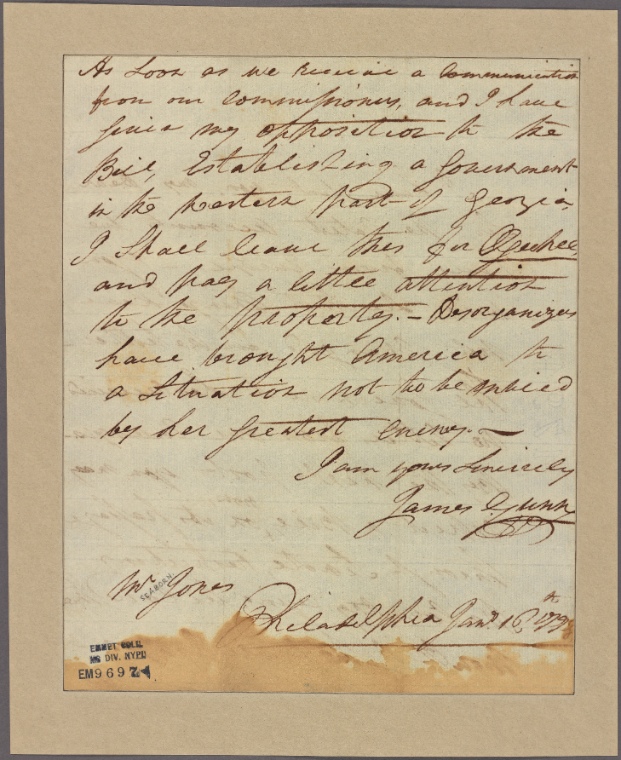 As Soon as we receive a Communication
from our Commissioners, and I have
given my opposition to the
Bill, Establishing a Government
in the Western part of Georgia
I Shall leave this for Ogechee
and pay a little attention
to the property. — Desorganizers
have brought America to
a Situation not to be envied
by her greatest enemy. —
I am yours Sincerely
James Gunn
Mr Jones
SEABORN
Philadelphia Jany 16th
EMMET COLL.
MS DIV. NYPL
EM9697